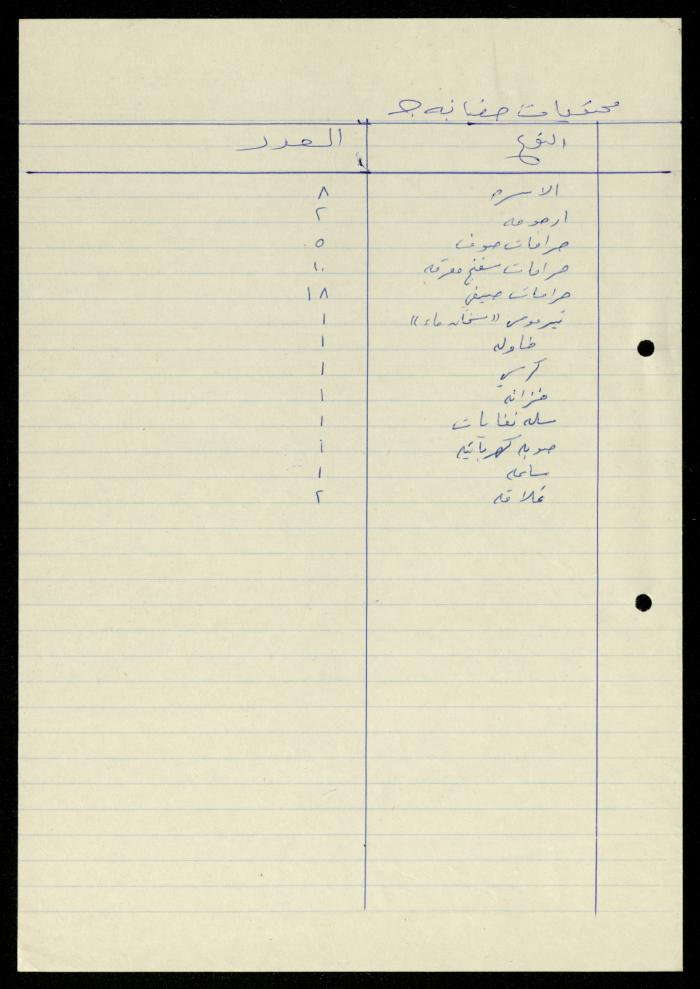 محتويات حضانه ج
النوع العدد
الاسره ٨
ارجوحه ٢
حرامات صوف ٥
حرامات سفنج معرقه ١٠
حرامات صيفي ١٨
تيرموس "سخان ماء" ١
طاوله ١
كرسي ١
خزانه ١
سله نفايات ١
صوبه كهربائيه ١
ساعه ١
علاقه ٢